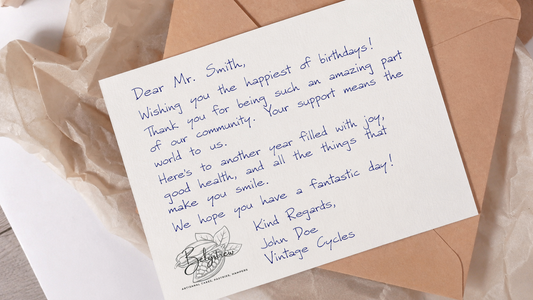 Dear Mr. Smith,
Wishing you the happiest of birthdays!
Thank you for being such an amazing part
of our community. Your support means the
world to us.
Here's to another year filled with joy,
good health, and all the things that
make you smile.
We hope you have a fantastic day!
Kind Regards,
John Doe
Vintage Cycles